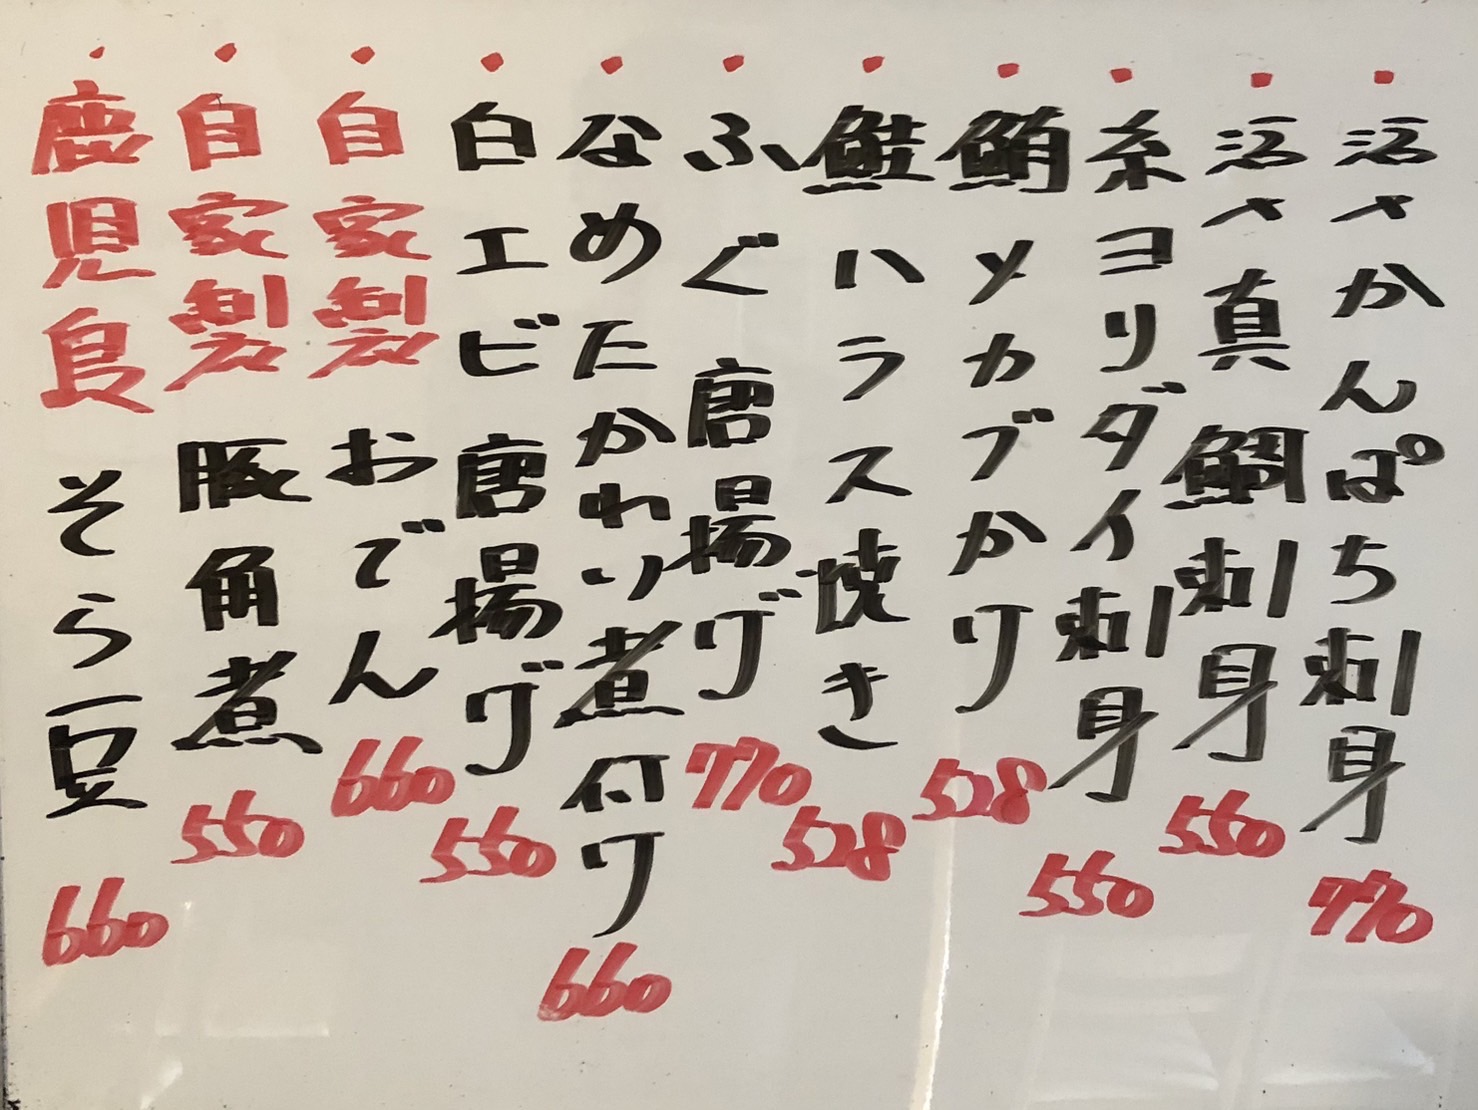 ・活〆かんぱち刺身 770
・活〆真鯛刺身 550
・糸ヨリダイ刺身 550
・鮪メカブかけ 528
・鮭ハラス焼き 528
・ふぐ唐揚げ 770
・なめたかれい煮付け 660
・白エビ唐揚げ 550
・自家製おでん 660
・自家製豚角煮 550
・鹿児島そら豆 660